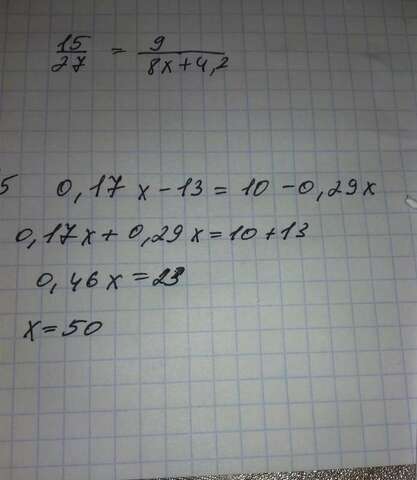 15/27 = 9/(8x+4,2)
5 0,17x-13=10-0,29x
0,17x+0,29x=10+13
0,46x=23
x=50